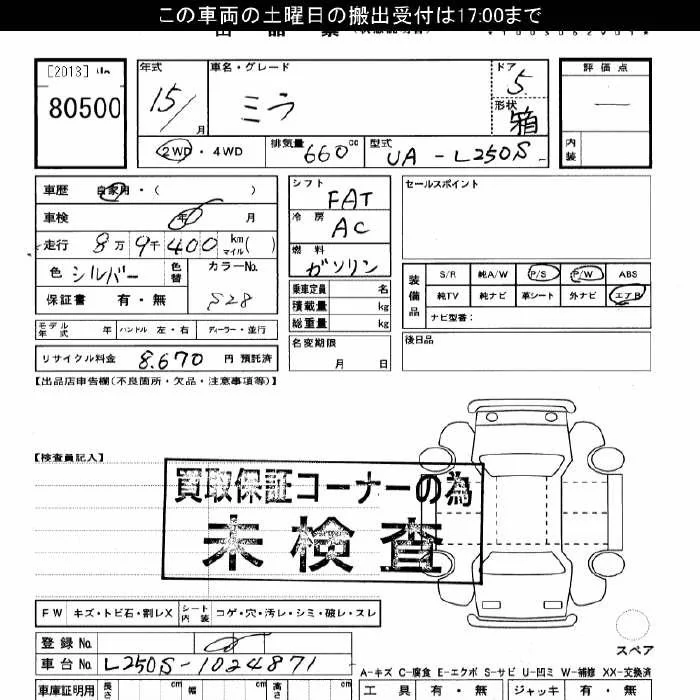 この車両の土曜日の搬出受付は17:00まで
[2013]
80500
年式
15/
月
車名・グレード
ミラ
ドア
5
形状
箱
評価点
―
内装
2WD・4WD
排気量
660
cc
型式
UA-L250S
車歴 自家用・( )
車検 年 月
走行 8万 9千 400 km マイル( )
色 シルバー 色替
カラーNo.
S28
保証書 有・無
モデル年式 年 ハンドル 左・右 ディーラー・並行
リサイクル料金 8.670 円 預託済
シフト
FAT
冷房
AC
燃料
ガソリン
乗車定員 名
積載量 kg
総重量 kg
名変期限
月 日
セールスポイント
装備品
S/R 純A/W P/S P/W ABS
純TV 純ナビ 革シート 外ナビ エアB
ナビ型番:
後日品
【出品店申告欄(不良箇所・欠品・注意事項等)】
【検査員記入】
買取保証コーナーの為
未検査
FW キズ・トビ石・割レX シート内装 コゲ・穴・汚レ・シミ・破レ・スレ
登録No.
車台No. L250S-1024871
車庫証明用 長さ cm 幅 cm 高さ cm
スペア
A-キズ C-腐食 E-エクボ S-サビ U-凹ミ W-補修 XX-交換済
工具 有・無 ジャッキ 有・無